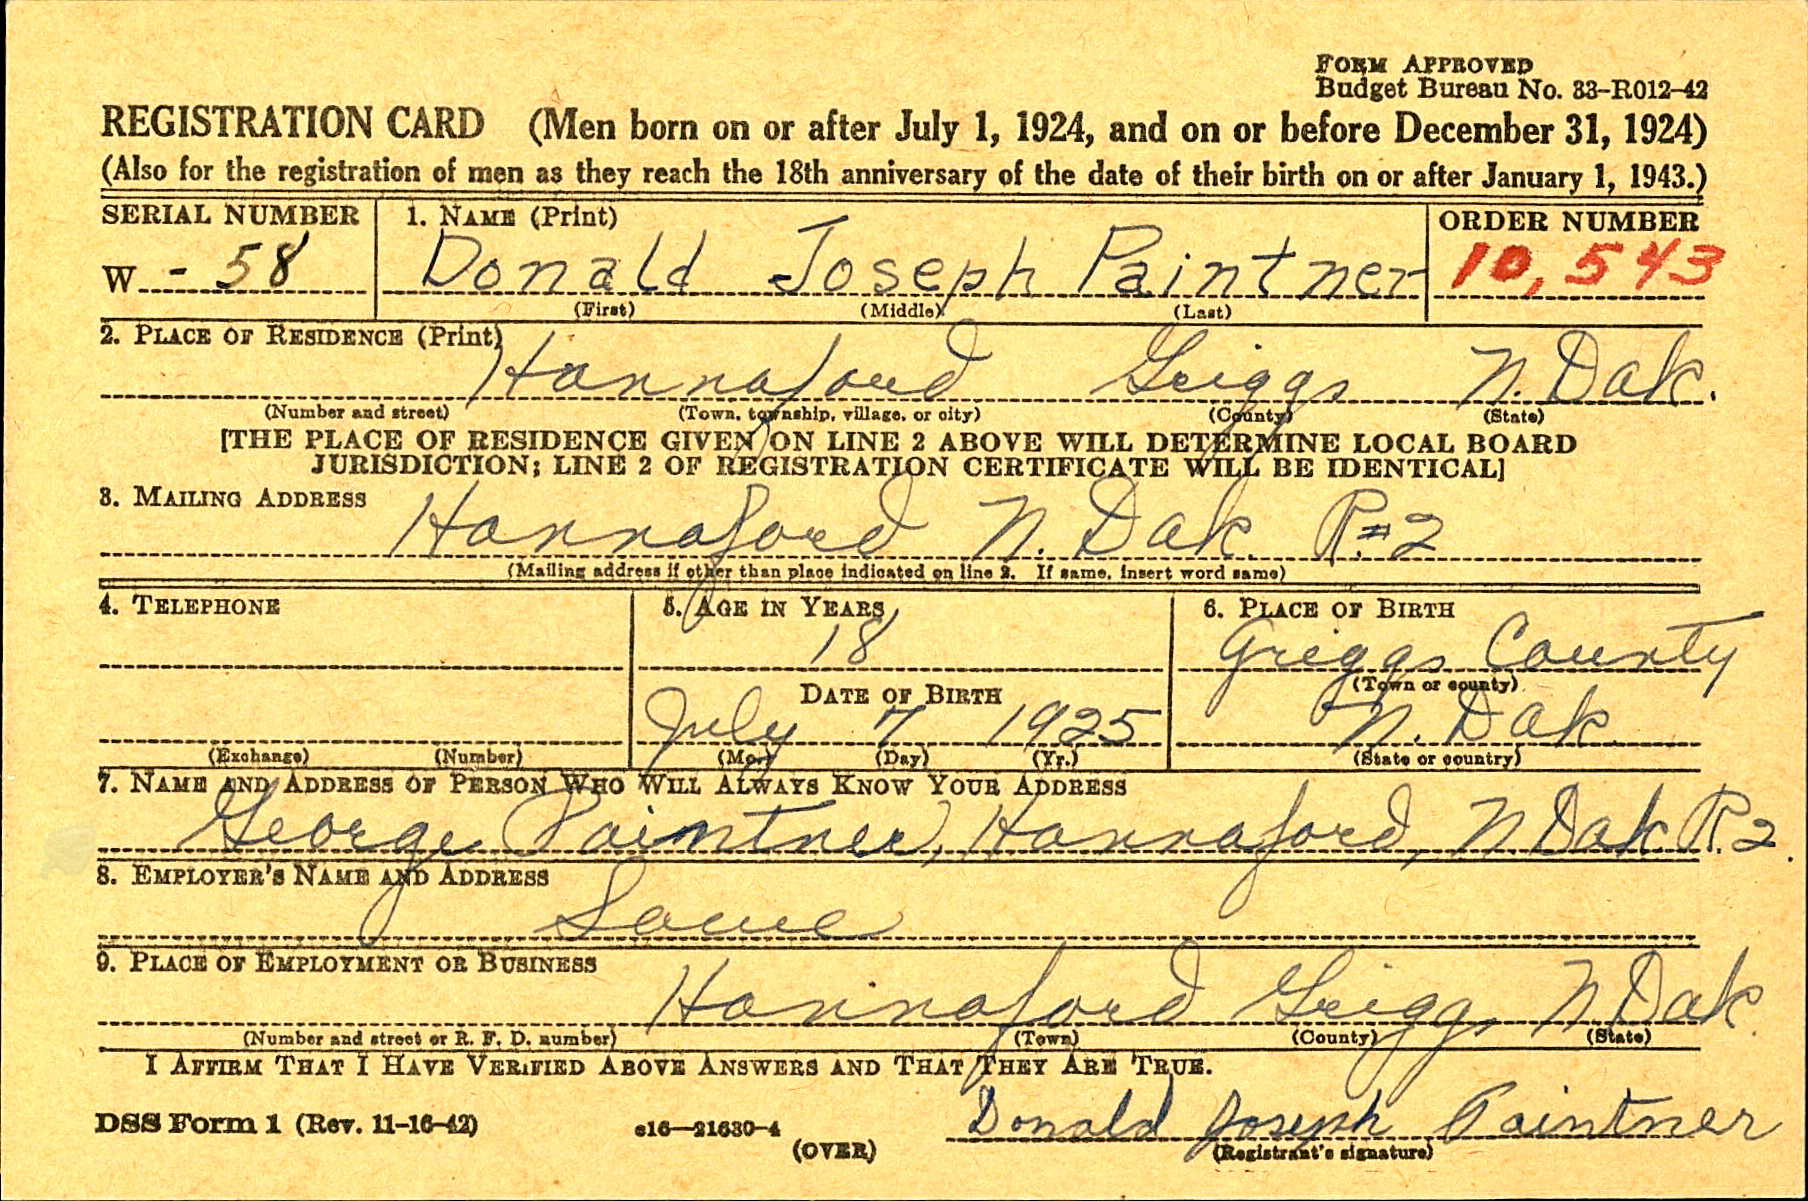 FORM APPROVED
Budget Bureau No. 33-R012-42
REGISTRATION CARD (Men born on or after July 1, 1924, and on or before December 31, 1924)
(Also for the registration of men as they reach the 18th anniversary of the date of their birth on or after January 1, 1943.)
SERIAL NUMBER 1. NAME (Print) ORDER NUMBER
W - 58 Donald Joseph Paintner 10,543
(First) (Middle) (Last)
2. PLACE OF RESIDENCE (Print)
Hannaford Griggs N. Dak.
(Number and street) (Town, township, village, or city) (County) (State)
[THE PLACE OF RESIDENCE GIVEN ON LINE 2 ABOVE WILL DETERMINE LOCAL BOARD
JURISDICTION; LINE 2 OF REGISTRATION CERTIFICATE WILL BE IDENTICAL]
3. MAILING ADDRESS
Hannaford N. Dak. R.#2
(Mailing address if other than place indicated on line 2. If same, insert word same)
4. TELEPHONE 5. AGE IN YEARS 6. PLACE OF BIRTH
18 Griggs County
(Town or county)
DATE OF BIRTH
July 7 1925 N. Dak.
(Exchange) (Number) (Mo.) (Day) (Yr.) (State or country)
7. NAME AND ADDRESS OF PERSON WHO WILL ALWAYS KNOW YOUR ADDRESS
George Paintner, Hannaford, N Dak R.2.
8. EMPLOYER'S NAME AND ADDRESS
Same
9. PLACE OF EMPLOYMENT OR BUSINESS
Hannaford Griggs N Dak.
(Number and street or R. F. D. number) (Town) (County) (State)
I AFFIRM THAT I HAVE VERIFIED ABOVE ANSWERS AND THAT THEY ARE TRUE.
DSS Form 1 (Rev. 11-16-42) c16—21630-4 Donald Joseph Paintner
(OVER) (Registrant's signature)